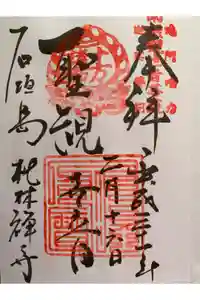 奉拝
平成三十一年
二月十六日
聖観世音
石垣島 桃林禅寺